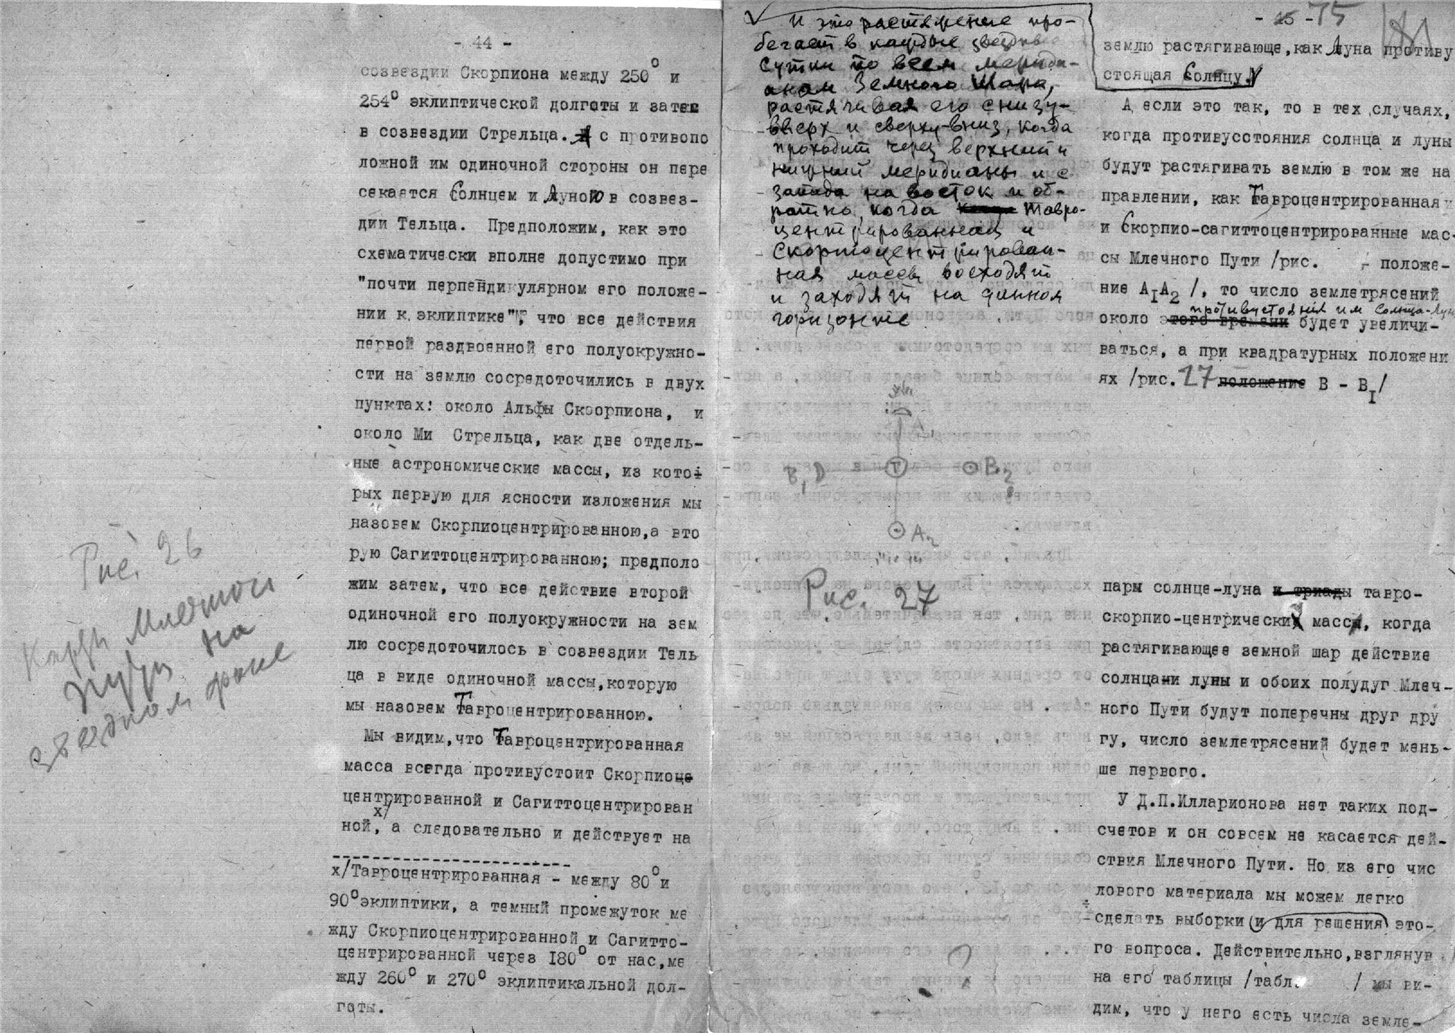 - 44 -
созвездии Скорпиона между 250⁰ и
254⁰ эклиптической долготы и затем
в созвездии Стрельца. А с противопо
ложной им одиночной стороны он пере
секается Солнцем и Луною в созвез-
дии Тельца. Предположим, как это
схематически вполне допустимо при
"почти перпендикулярном его положе-
нии к эклиптике", что все действия
первой раздвоенной его полуокружно-
сти на землю сосредоточились в двух
пунктах: около Альфы Скоорпиона, и
около Ми Стрельца, как две отдель-
ные астрономические массы, из кото
рых первую для ясности изложения мы
назовем Скорпиоцентрированною, а вто
рую Сагиттоцентрированною; предполо
жим затем, что все действие второй
одиночной его полуокружности на зем
лю сосредоточилось в созвездии Тель
ца в виде одиночной массы, которую
мы назовем Тавроцентрированною.
Мы видим, что Тавроцентрированная
масса всегда противустоит Скорпиоце
центрированной и Сагиттоцентрирован
ной,х/ а следовательно и действует на
х/Тавроцентрированная - между 80⁰ и
90⁰ эклиптики, а темный промежуток ме
жду Скорпиоцентрированной и Сагитто-
центрированной через I80⁰ от нас, ме
жду 260⁰ и 270⁰ эклиптикальной дол-
готы.
Рис. 26
Карта Млечного
Пути на
звездном фоне
И это растяжение про-
бегает в каждые звездные
сутки по всем мериди-
анам Земного Шара,
растягивая его снизу-
вверх и сверху-вниз, когда
проходит через верхний и
нижний меридианы и с
запада на восток и об-
ратно, когда Тавро-
центрированная и
Скорпиоцентрирован-
ная массы восходят
и заходят на данном
горизонте
A₂
B₂
Рис. 27
- 45 - 75
землю растягивающе, как Луна противу
стоящая Солнцу.
А если это так, то в тех случаях,
когда противустояния солнца и луны
будут растягивать землю в том же на
правлении, как Тавроцентрированная
и Скорпио-сагиттоцентрированные мас-
сы Млечного Пути /рис. - положе-
ние АIА2 /, то число землетрясений
противустояния им Солнца-Луны
около этого времени будет увеличи-
ваться, а при квадратурных положени
ях /рис. 27 положение В - ВI/
пары солнце-луна и триады тавро-
скорпио-центрических масс, когда
растягивающее земной шар действие
солнцани луны и обоих полудуг Млеч-
ного Пути будут поперечны друг дру
гу, число землетрясений будет мень-
ше первого.
У Д.П.Илларионова нет таких под-
счетов и он совсем не касается дей-
ствия Млечного Пути. Но из его чис
лового материала мы можем легко
сделать выборки и для решения это-
го вопроса. Действительно, взглянув
на его таблицы /табл. / мы ви-
дим, что у него есть числа земле-